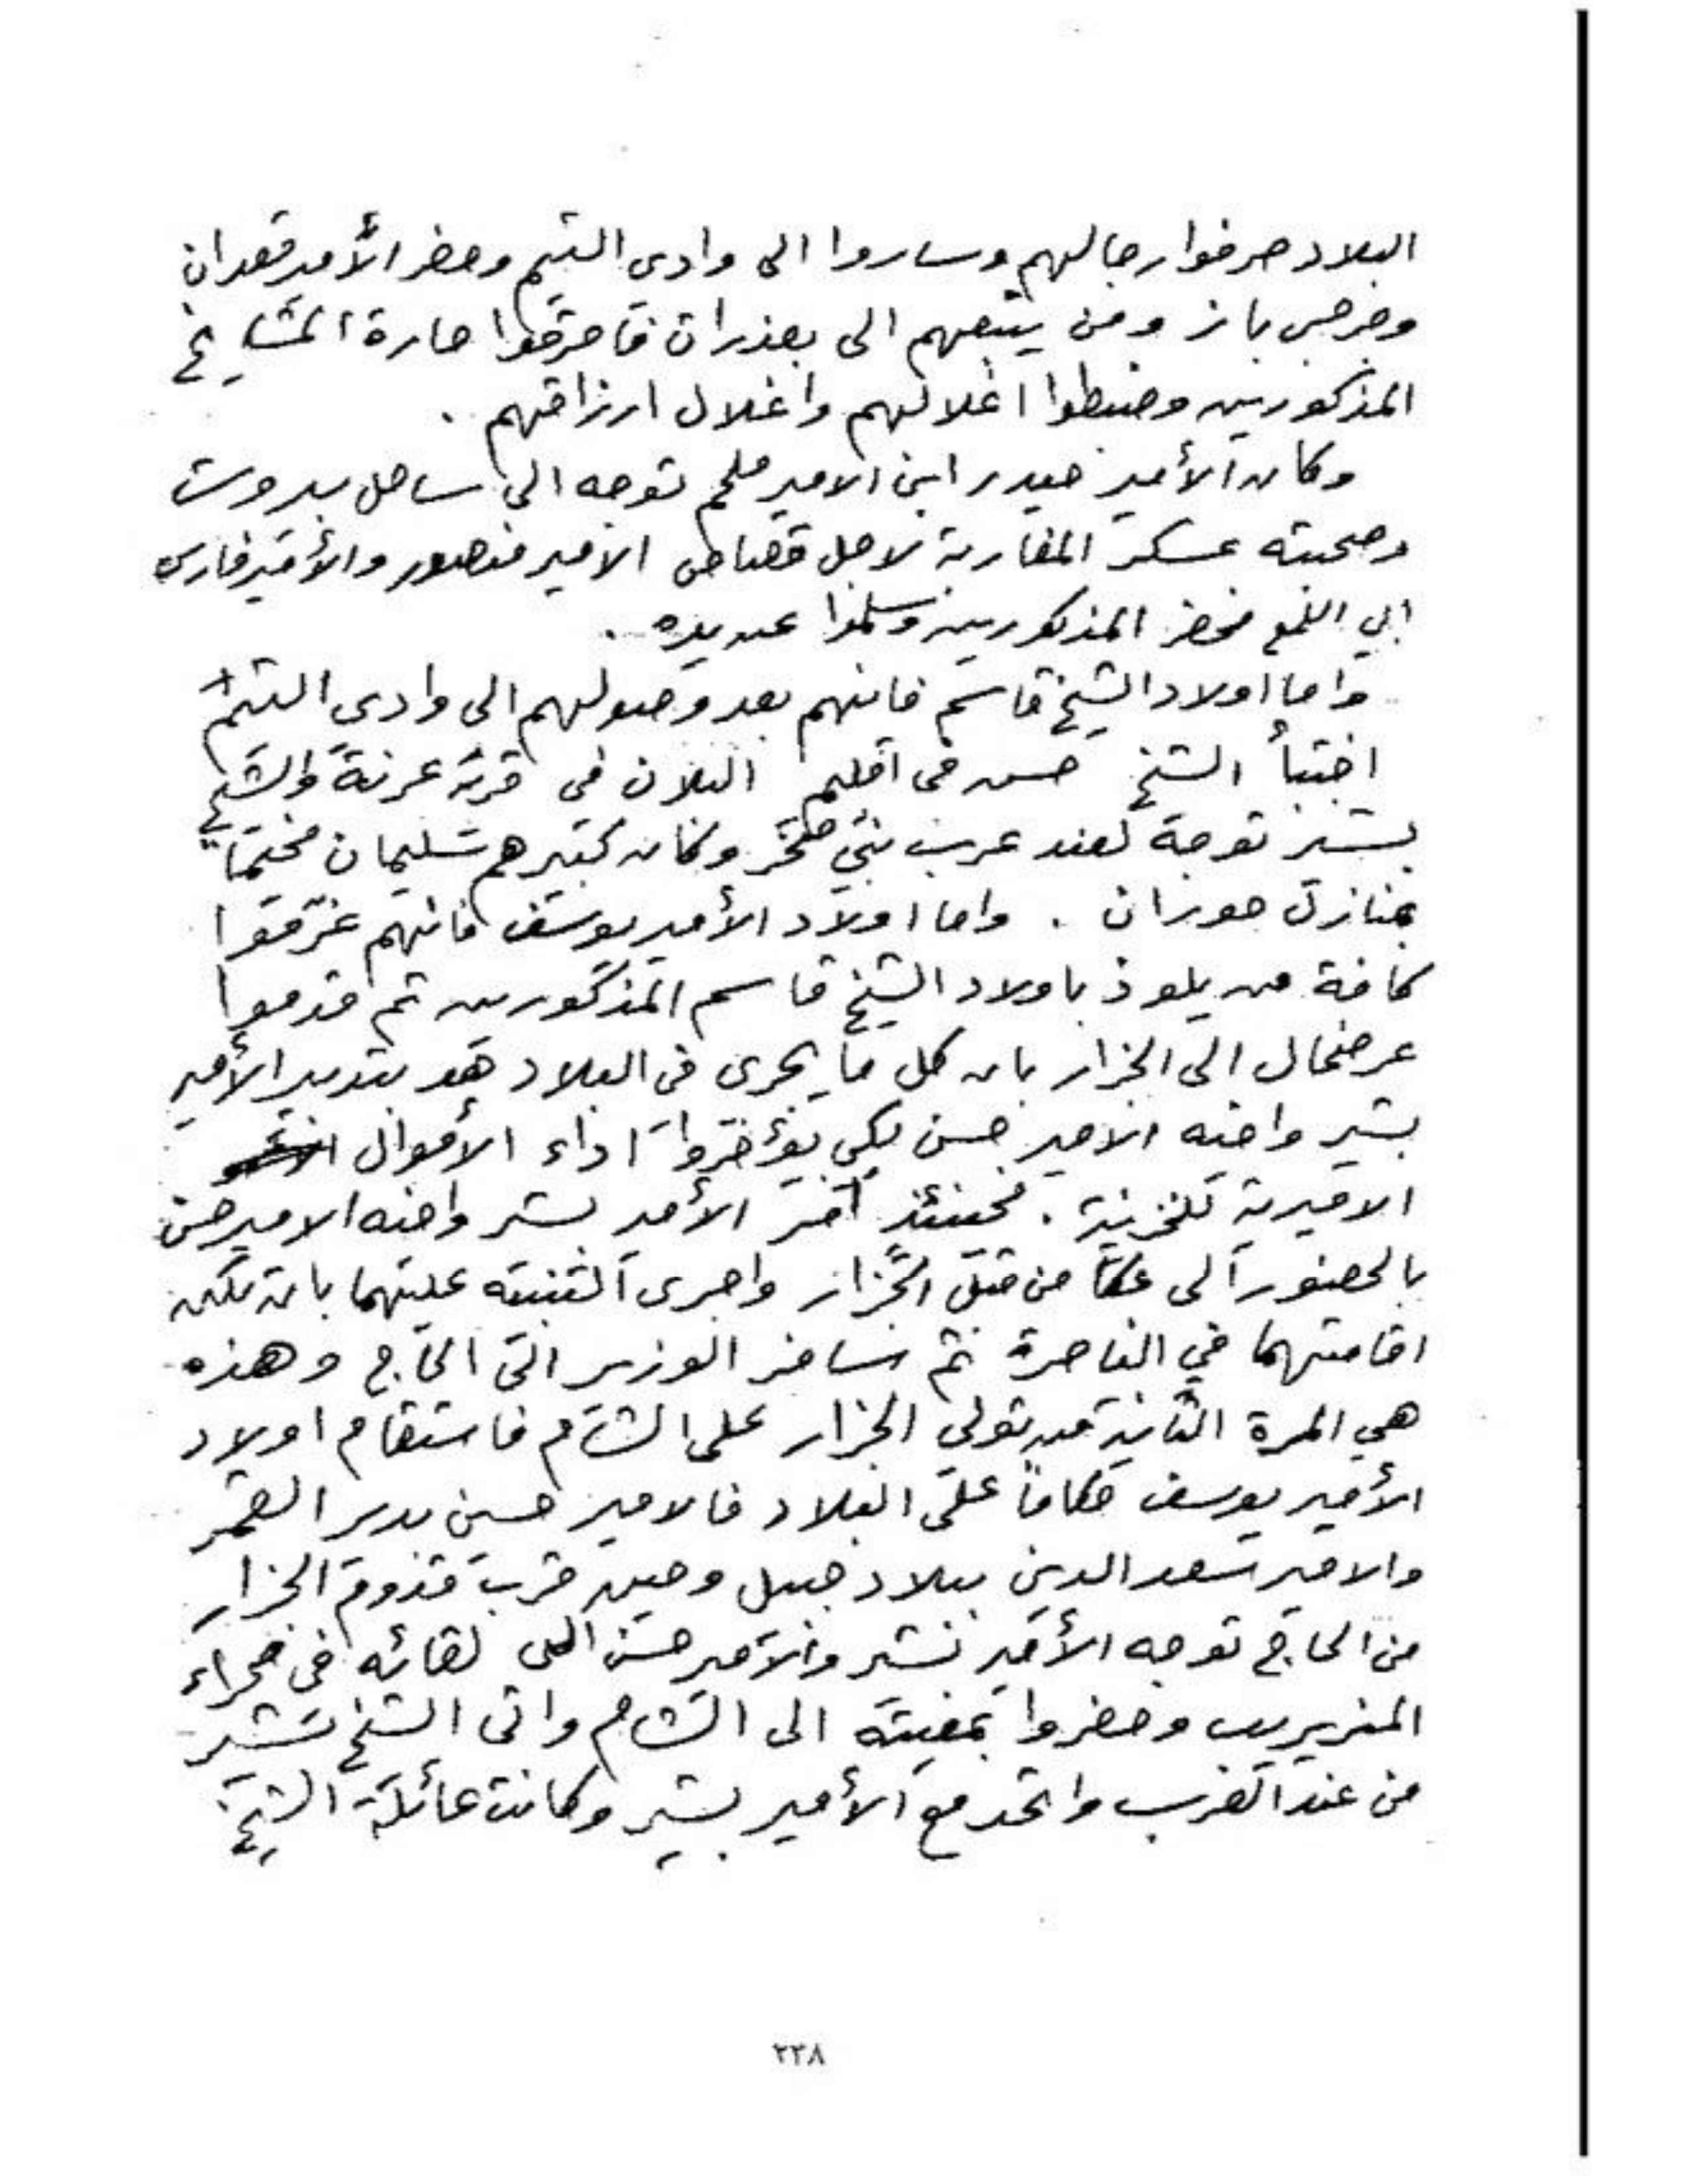 البلاد صرفوا رجالهم وساروا الى وادى التيم وحضر الأمير قعدان
وجرجس باز ومن يتبعهم الى بعذران فاحرقوا حارة المشايخ
المذكورين وضبطوا اغلالهم واغلال ارزاقهم .
وكان الأمير حيدر ابن الامير ملحم توجه الى ساحل بيروت
وصحبته عسكر المغاربة لاجل قصاص الامير منصور والأمير فارس
ابي اللمع فحضر المذكورين وسلموا عن يده .
واما اولاد الشيخ قاسم فانهم بعد وصولهم الى وادى التيم
اختبأ الشيخ حسن فى اقليم البلان فى قرية عرنة والشيخ
بشير توجه لعند عرب بني صخر وكان كبيرهم سليمان مخيماً
بمنازل حوران . واما اولاد الأمير يوسف فانهم غرّقوا
كافة من يلوذ باولاد الشيخ قاسم المذكورين ثم قدموا
عرضحال الى الجزار بان كل ما يجرى فى البلاد هو بتدبير الأمير
بشير واخيه الامير حسن لكي يؤخروا اداء الأموال
الاميرية للخزينة . فحينئذٍ أمر الأمير بشير واخيه الامير حسن
بالحضور الى عكا من قبل الجزار واجرى التنبيه عليهما بان تكن
اقامتهما في الناصرة ثم سافر الوزير الى الحاج وهذه
هي المرة الثانية من تولي الجزار على الشام فاستقام اولاد
الأمير يوسف حكاماً على البلاد فالامير حسين بدير القمر
والامير سعد الدين ببلاد جبيل وحين قرب قدوم الجزار
من الحاج توجه الأمير بشير والامير حسن الى لقائه فى صحراء
المزيريب وحضروا بمعيته الى الشام واتى الشيخ بشير
من عند العرب واتحد مع الأمير بشير وكانت عائلة الشيخ
٢٣٨